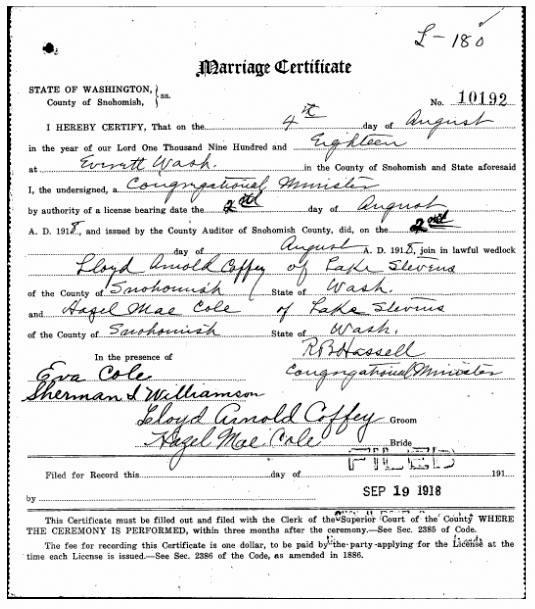 L-180
Marriage Certificate
STATE OF WASHINGTON,
County of Snohomish, } ss.
No. 10192
I HEREBY CERTIFY, That on the 4th day of August
in the year of our Lord One Thousand Nine Hundred and Eighteen
at Everett Wash. in the County of Snohomish and State aforesaid
I, the undersigned, a Congregational Minister
by authority of a license bearing date the 2nd day of August
A. D. 1918, and issued by the County Auditor of Snohomish County, did, on the 2nd
day of August A. D. 1918, join in lawful wedlock
Lloyd Arnold Coffey of Lake Stevens
of the County of Snohomish State of Wash.
and Hazel Mae Cole of Lake Stevens
of the County of Snohomish State of Wash.
In the presence of R B Hassell
Eva Cole Congregational Minister
Sherman I Williamson
Lloyd Arnold Coffey Groom
Hazel Mae Cole Bride
FILED
Filed for Record this day of 191
by SEP 19 1918
This Certificate must be filled out and filed with the Clerk of the Superior Court of the County WHERE
THE CEREMONY IS PERFORMED, within three months after the ceremony.—See Sec. 2385 of Code.
The fee for recording this Certificate is one dollar, to be paid by the party applying for the License at the
time each License is issued.—See Sec. 2386 of the Code, as amended in 1886.